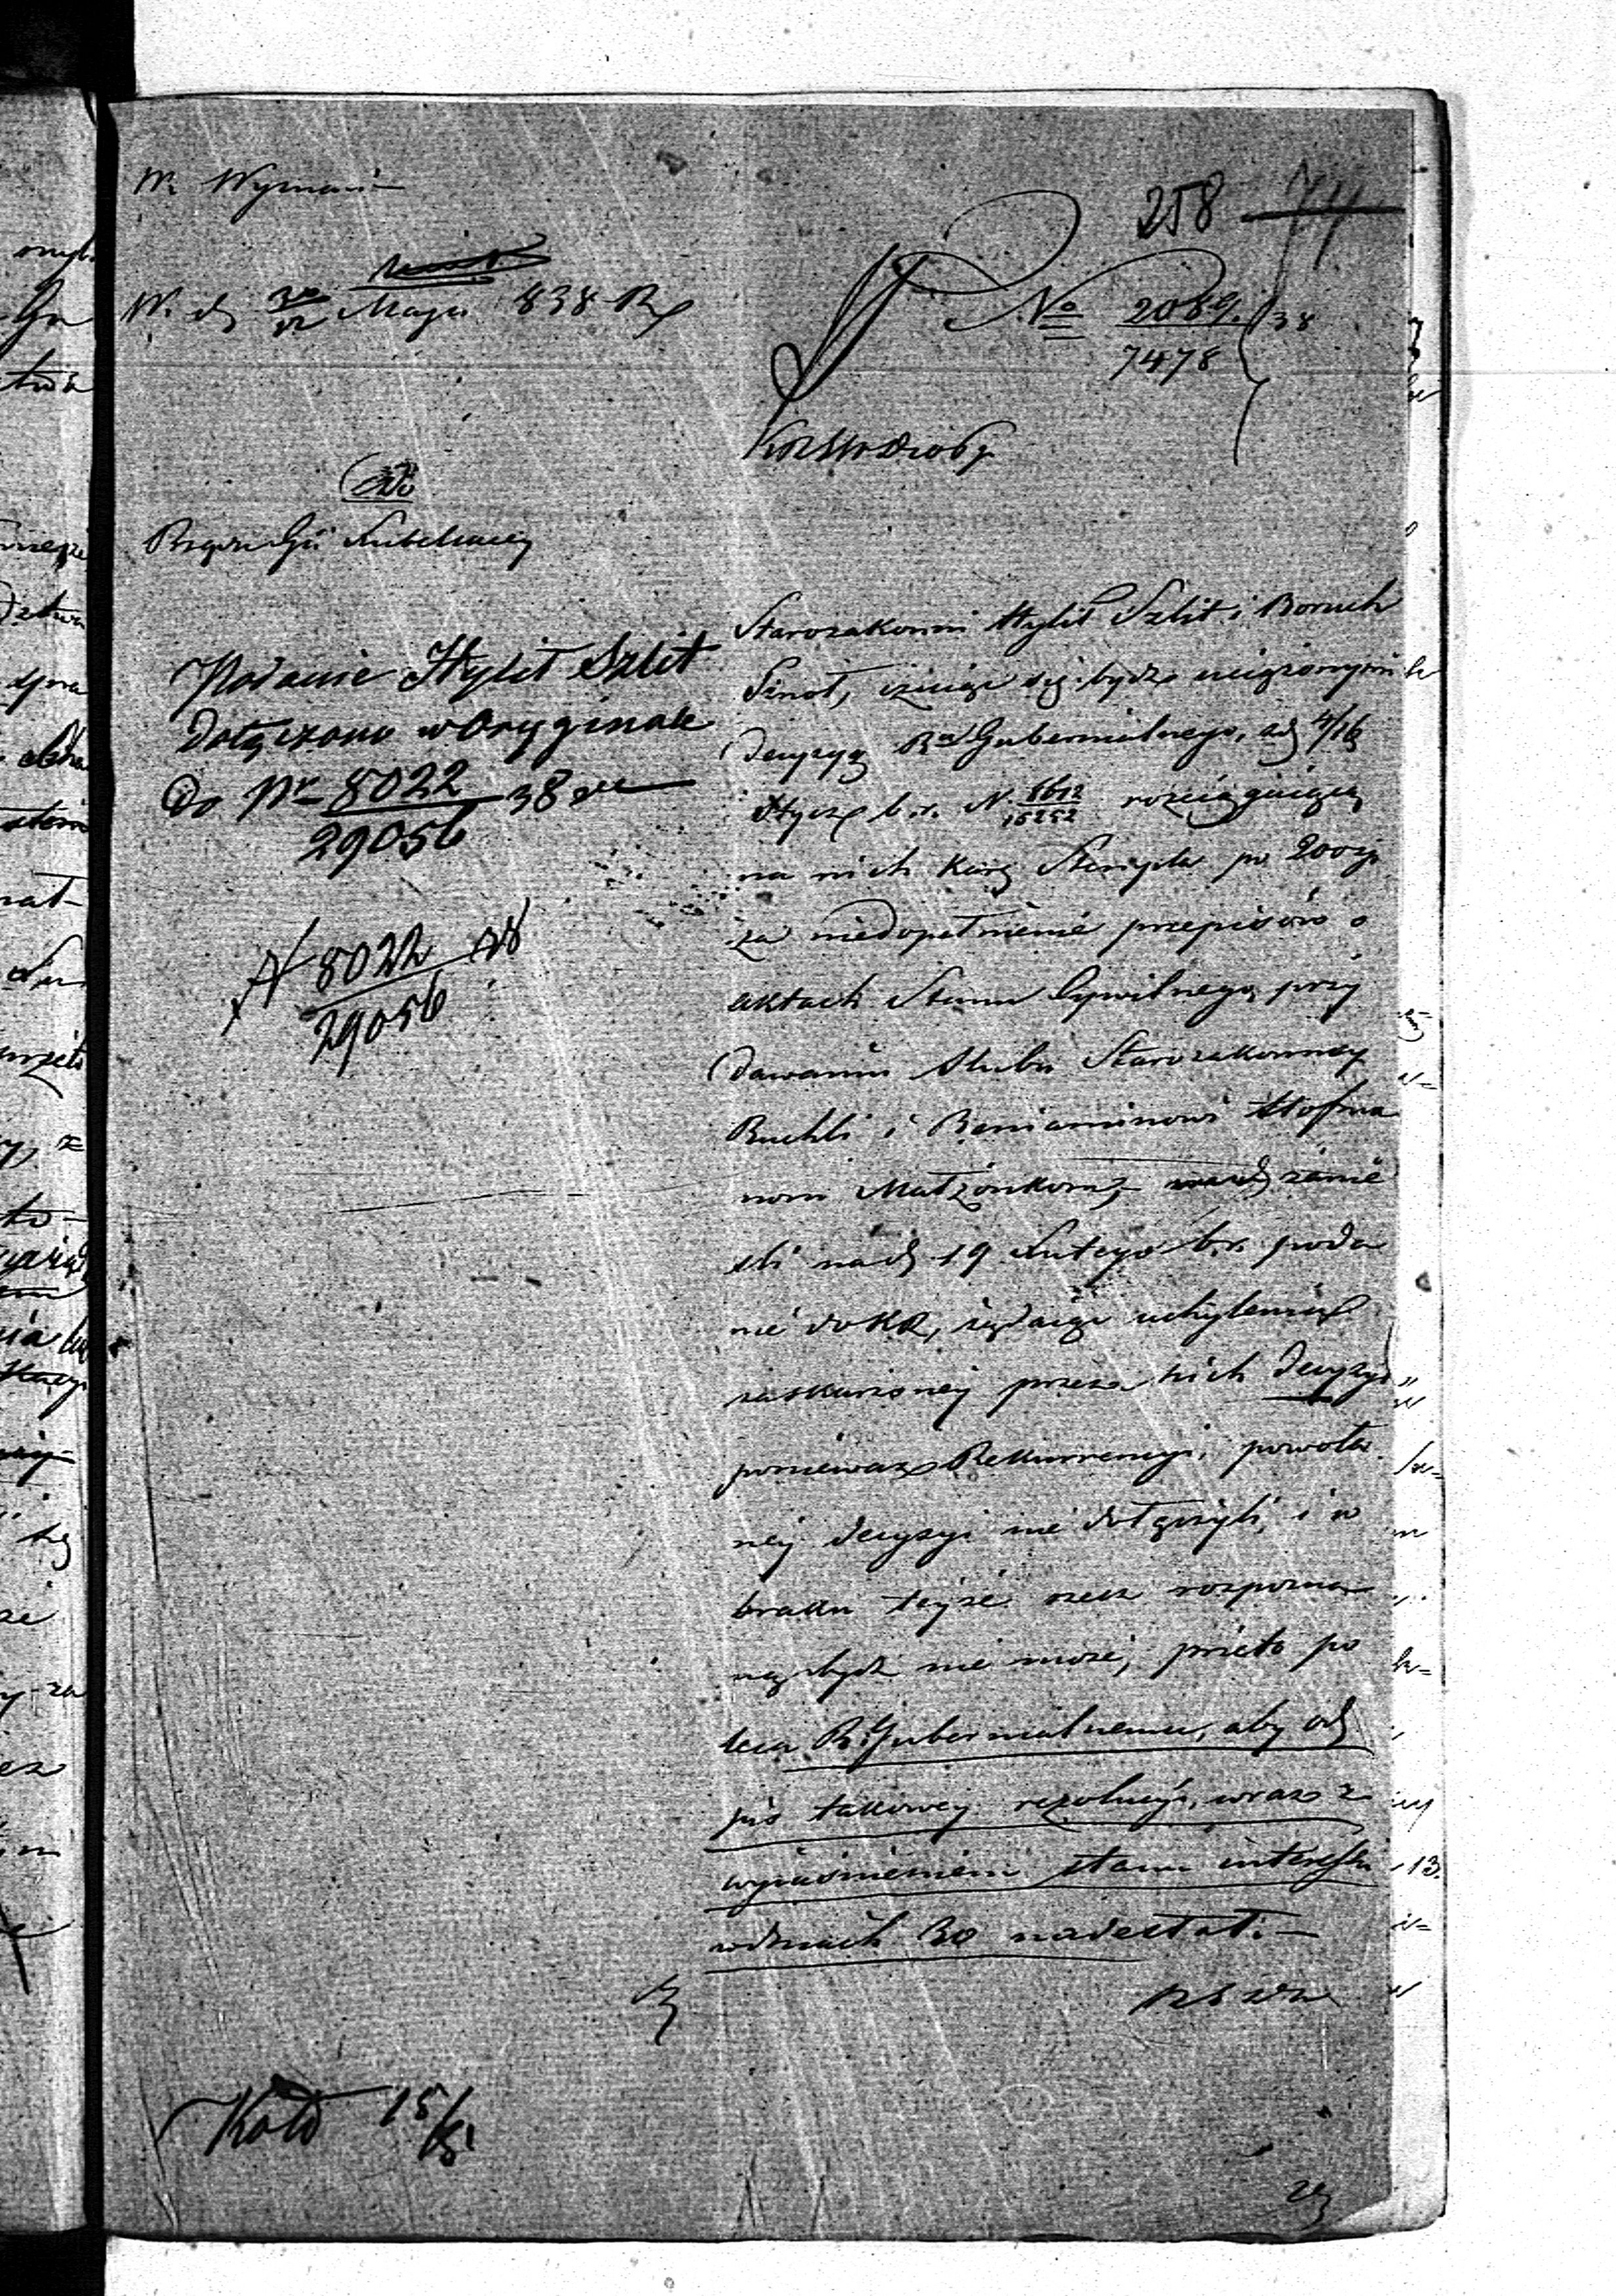 W. Wyznań
258 74
W. d. 30/12 Maja 838 R.
No 2089/7478 38
Do
Rządu Gu Lubelskiey
Podanie Hylit Szlit
dołączono w Oryginale
do Nr 8022/29056 38
N 8022/29056 38
Starozakonni Hylit Szlit i Boruch
Sznol, czując się bydź uciążonymi
decyzyą Rdu Gubernialnego, z d. 4/16
Stycz b.r. N. rozciągaiącą
na nich karę Stempla po 200 zł
za niedopełnienie przepisów o
aktach Stanu Cywilnego, przy
dawaniu ślubu Starozakonney
Ruchli i Beniaminowi Hofma
nom Małżonkom, zanie
śli na d. 19 Lutego b.r. poda
nie do KR, żądaiąc uchylenia
zaskarżoney przez nich decyzyi
ponieważ Rekurrenci, powoła
ney decyzyi nie dołączyli, i w
braku teyże rzecz rozpozna
ną bydź nie może, przeto po
leca R. Gubernialnemu, aby od
pis takowey rezolucyi, wraz z
wyiaśnieniem stanu interessu
w dniach 30 nadesłał. —
Kold 15/5